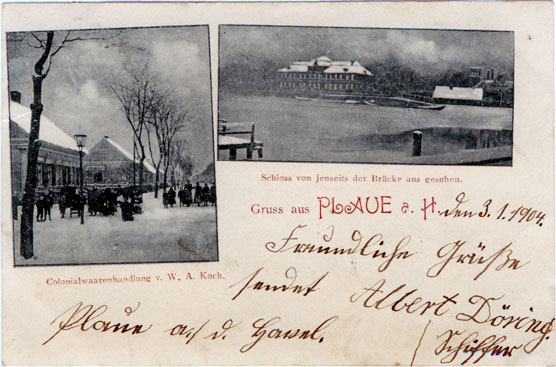 Schloss von jenseits der Brücke aus gesehen.
Gruss aus PLAUE a. H. den 3.1.1904.
Colonialwaarenhandlung v. W. A. Koch.
Freundliche Grüße
sendet Albert Döring,
Schiffer
Plaue a./d. Havel.